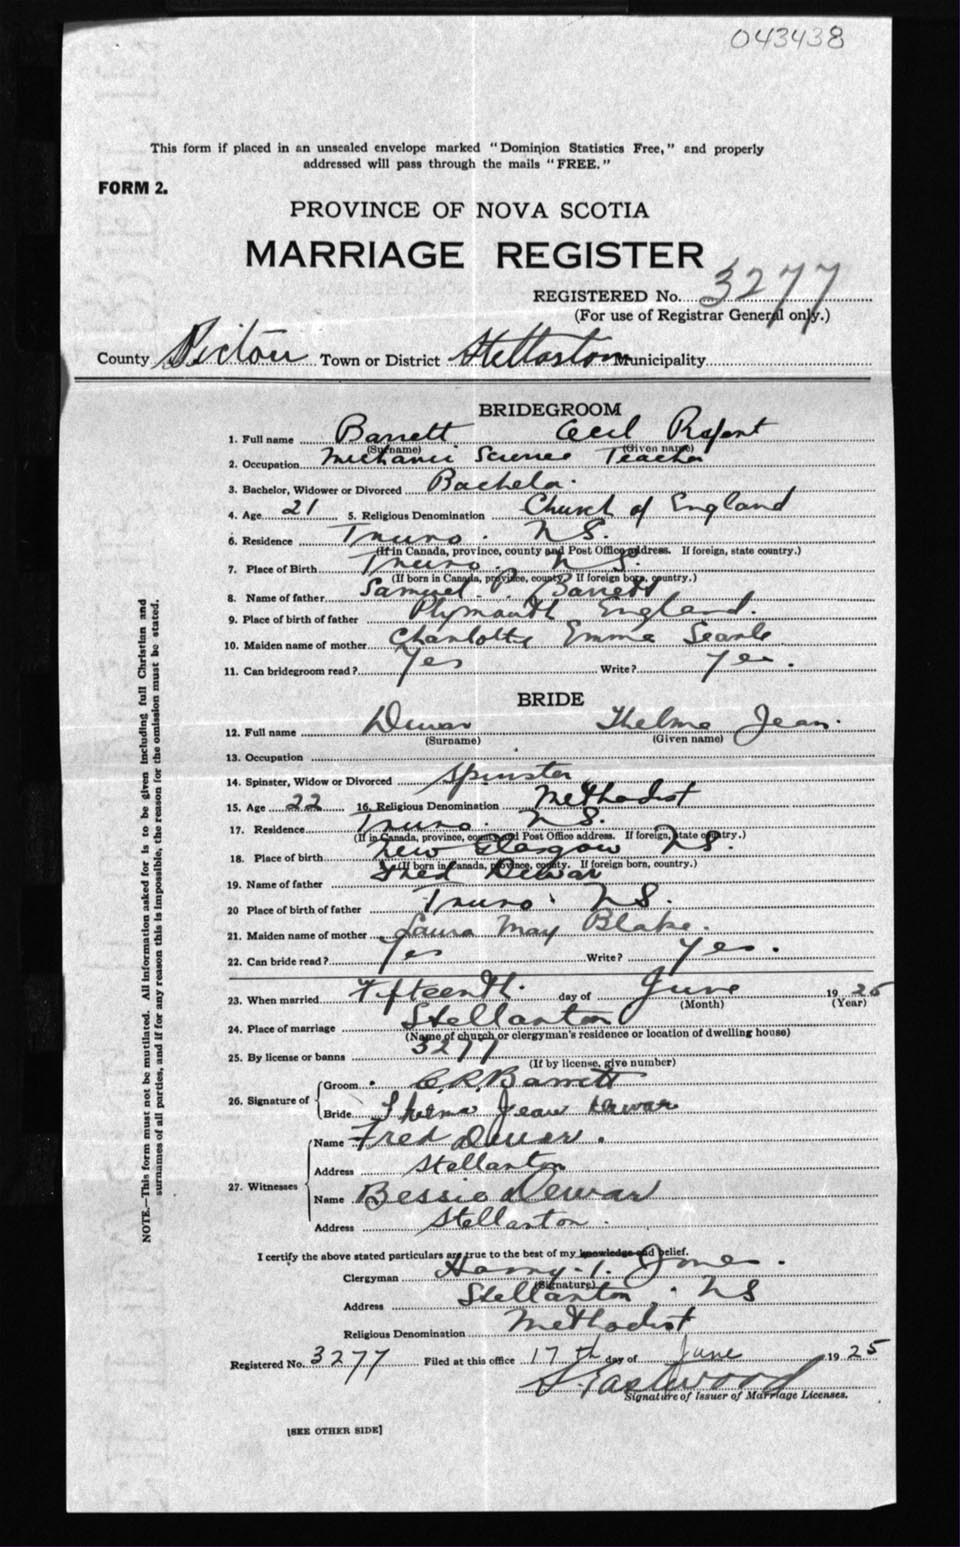 043438
This form if placed in an unsealed envelope marked "Dominion Statistics Free," and properly
addressed will pass through the mails "FREE."
FORM 2.
PROVINCE OF NOVA SCOTIA
MARRIAGE REGISTER
REGISTERED No. 3277
(For use of Registrar General only.)
County Pictou Town or District Stellarton Municipality
BRIDEGROOM
1. Full name Barrett Cecil
(Surname) (Given name)
2. Occupation Mechanic Science Teacher
3. Bachelor, Widower or Divorced Bachelor.
4. Age 21 5. Religious Denomination Church of England
6. Residence Truro. N.S.
(If in Canada, province, county and Post Office address. If foreign, state country.)
7. Place of Birth Truro. N.S.
(If born in Canada, province, county. If foreign born, country.)
8. Name of father Samuel P. Barrett
9. Place of birth of father Plymouth England.
10. Maiden name of mother Charlotte Emma Searle
11. Can bridegroom read? Yes Write? Yes.
BRIDE
12. Full name Dewar Thelma Jean.
(Surname) (Given name)
13. Occupation
14. Spinster, Widow or Divorced Spinster
15. Age 22 16. Religious Denomination Methodist
17. Residence Truro. N.S.
(If in Canada, province, county and Post Office address. If foreign, state country.)
18. Place of birth New Glasgow N.S.
(If born in Canada, province, county. If foreign born, country.)
19. Name of father Fred Dewar
20 Place of birth of father Truro. N.S.
21. Maiden name of mother Laura May Blake.
22. Can bride read? Yes Write? Yes.
23. When married Fifteenth. day of June 1925
(Month) (Year)
24. Place of marriage Stellarton
(Name of church or clergyman's residence or location of dwelling house)
25. By license or banns 3277
(If by license, give number)
26. Signature of
Groom C.R. Barrett
Bride Thelma Jean Dewar
27. Witnesses
Name Fred Dewar.
Address Stellarton
Name Bessie Dewar
Address Stellarton.
I certify the above stated particulars are true to the best of my knowledge and belief.
Clergyman Harry. Jones.
(Signature)
Address Stellarton. N S
Religious Denomination Methodist
Registered No. 3277 Filed at this office 17th day of June 1925
Eastwood
Signature of Issuer of Marriage Licenses.
[SEE OTHER SIDE]
NOTE.—This form must not be mutilated. All information asked for is to be given including full Christian and
surnames of all parties, and if for any reason this is impossible, the reason for the omission must be stated.